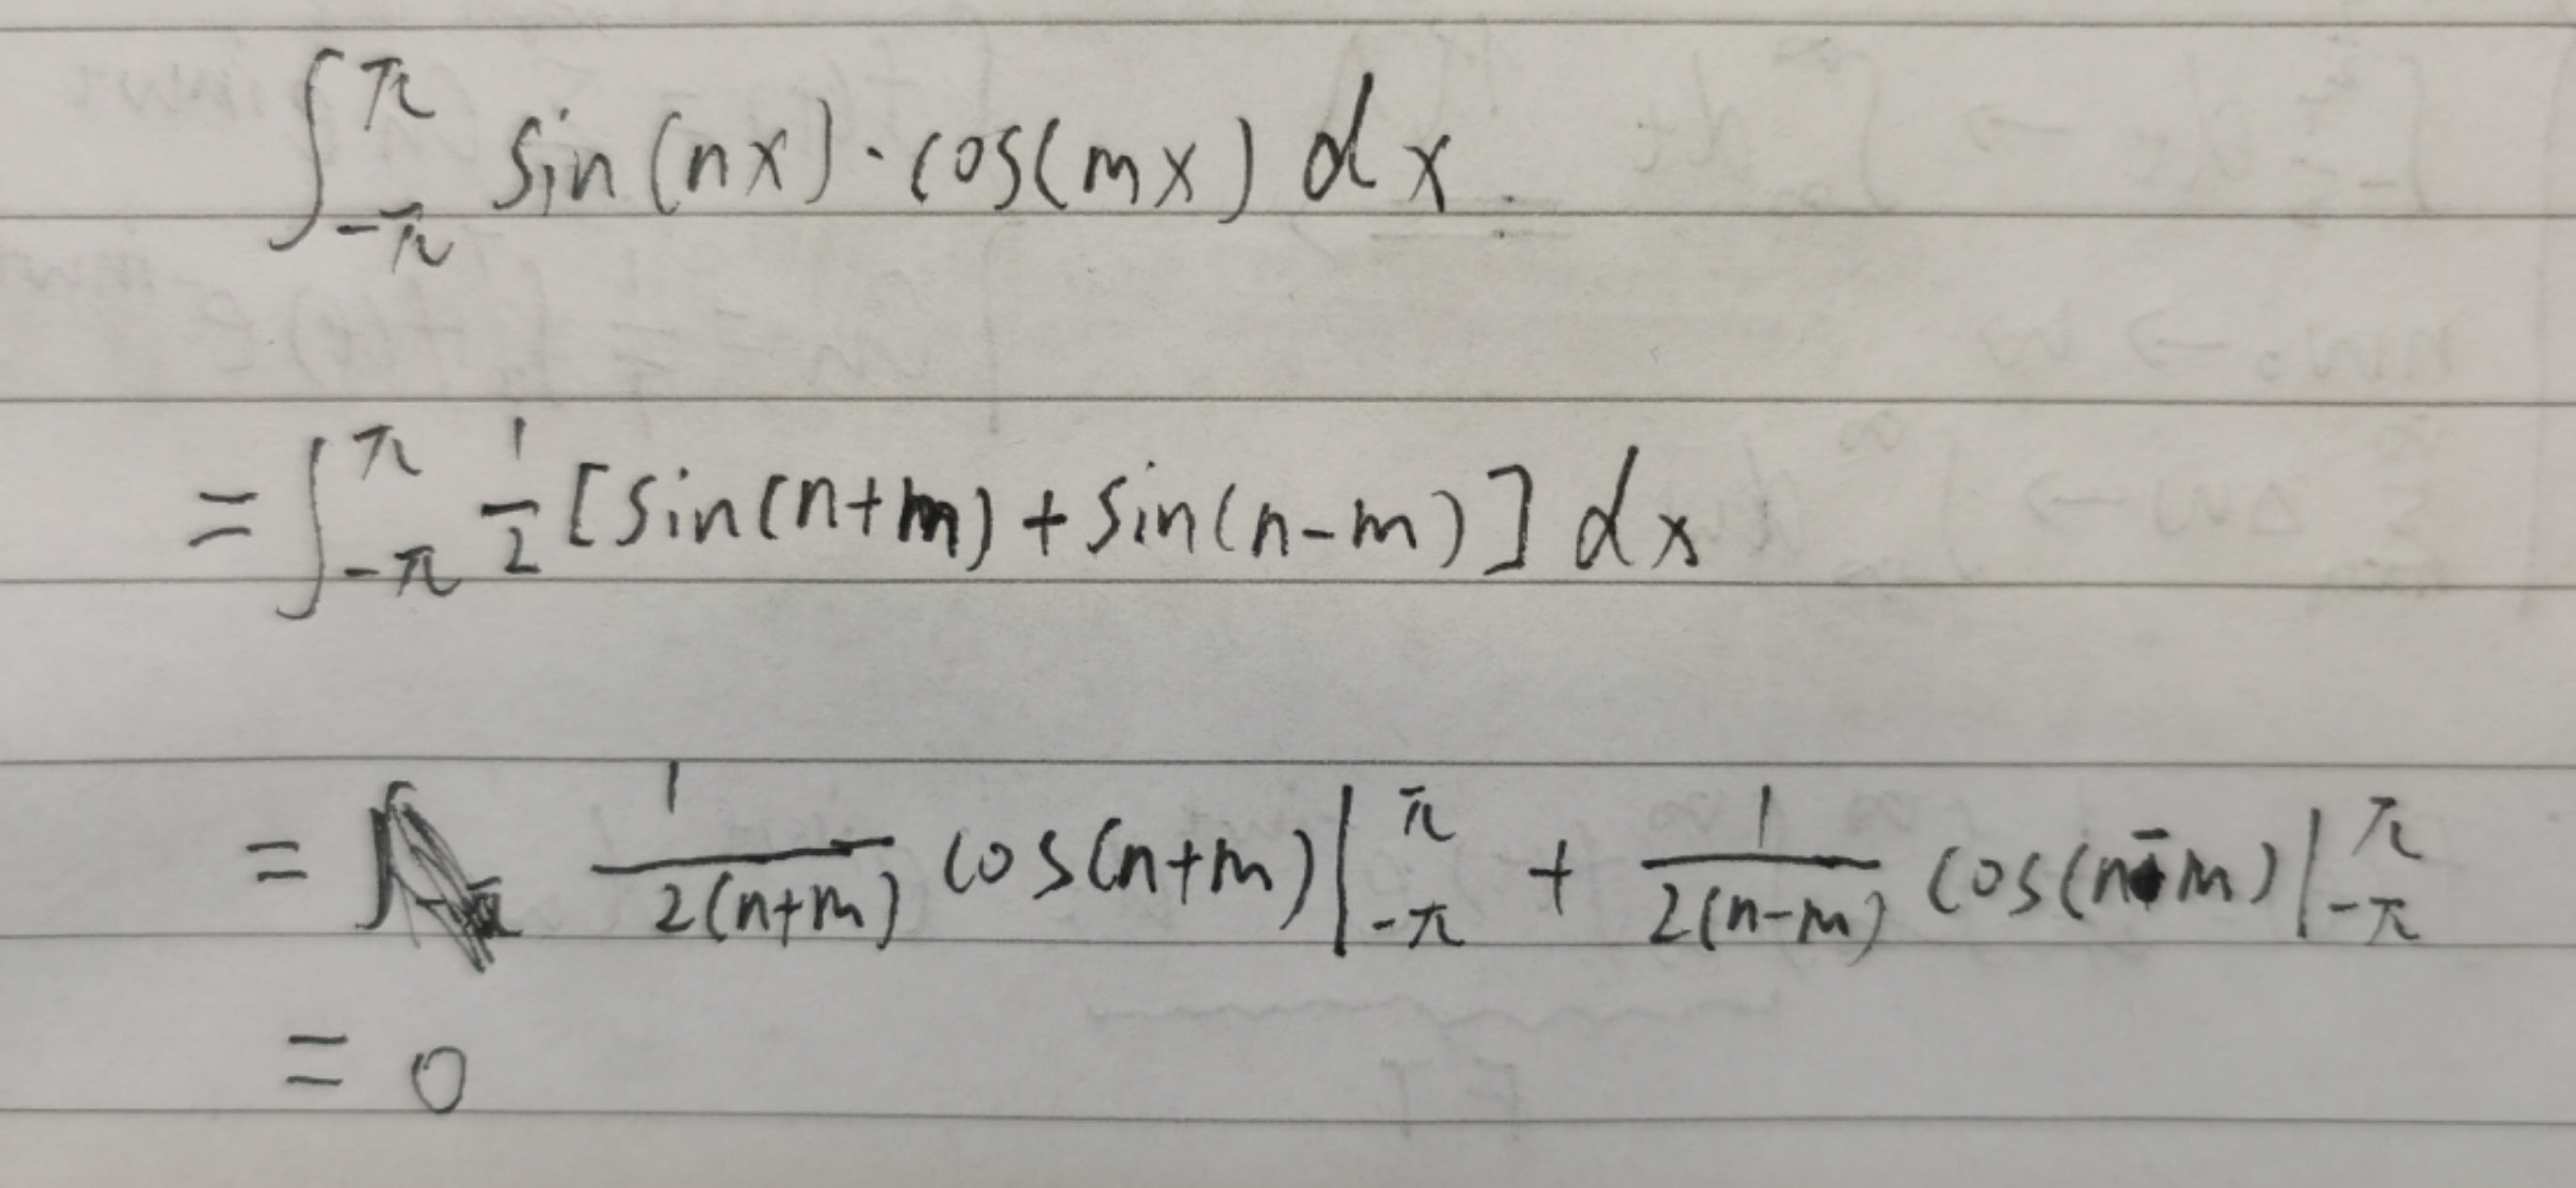 ∫_{-π}^{π} sin(nx)·cos(mx) dx
= ∫_{-π}^{π} 1/2 [sin(n+m) + sin(n-m)] dx
= 1/(2(n+m)) cos(n+m) |_{-π}^{π} + 1/(2(n-m)) cos(n-m) |_{-π}^{π}
= 0